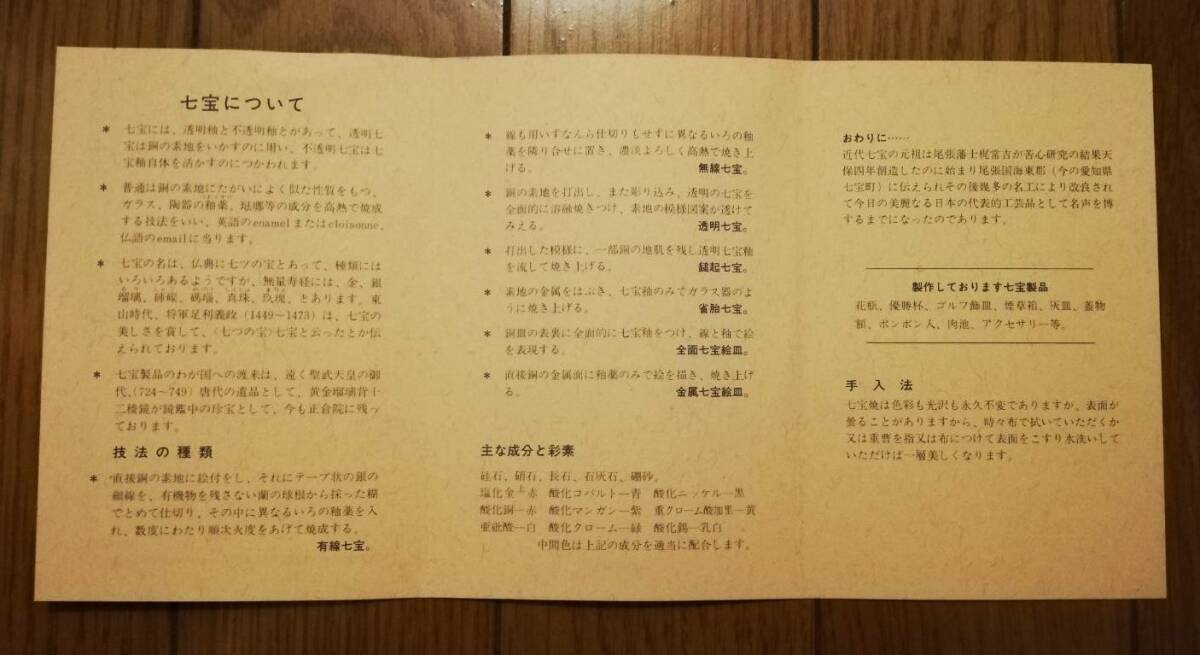 七宝について
* 七宝には、透明釉と不透明釉とがあって、透明七
宝は銅の素地をいかすのに用い、不透明七宝は七
宝釉自体を活かすのにつかわれます。
* 普通は銅の素地にたがいによく似た性質をもつ、
ガラス、陶器の釉薬、琺瑯等の成分を高熱で焼成
する技法をいい、英語のenamelまたはcloisonne、
仏語のemailに当ります。
* 七宝の名は、仏典に七ツの宝とあって、種類には
いろいろあるようですが、無量寿経には、金、銀
瑠璃、硨磲、瑪瑙、真珠、玫瑰、とあります。東
山時代、将軍足利義政(1449~1473)は、七宝の
美しさを賞して、〈七つの宝〉七宝と云ったとか伝
えられております。
* 七宝製品のわが国への渡来は、遠く聖武天皇の御
代、(724~749)唐代の遺品として、黄金瑠璃背十
二稜鏡が図鑑中の珍宝として、今も正倉院に残っ
ております。
技法の種類
* 直接銅の素地に絵付をし、それにテープ状の銀の
細線を、有機物を残さない蘭の球根から採った糊
でとめて仕切り、その中に異なるいろの釉薬を入
れ、数度にわたり順次火度をあげて焼成する。
有線七宝。
* 線も用いずなんら仕切りもせずに異なるいろの釉
薬を隣り合せに置き、濃淡よろしく高熱で焼き上
げる。 無線七宝。
* 銅の素地を打出し、また彫り込み、透明の七宝を
全面的に溶融焼きつけ、素地の模様図案が透けて
みえる。 透明七宝。
* 打出した模様に、一部銅の地肌を残し透明七宝釉
を流して焼き上げる。 鎚起七宝。
* 素地の金属をはぶき、七宝釉のみでガラス器のよ
うに焼き上げる。 省胎七宝。
* 銅皿の表裏に全面的に七宝釉をつけ、線と釉で絵
を表現する。 全面七宝絵皿。
* 直接銅の金属面に釉薬のみで絵を描き、焼き上げ
る。 金属七宝絵皿。
主な成分と彩素
硅石、硝石、長石、石灰石、硼砂。
塩化金―赤 酸化コバルト―青 酸化ニッケル―黒
酸化銅―赤 酸化マンガン―紫 重クローム酸加里―黄
亜砒酸―白 酸化クローム―緑 酸化錫―乳白
中間色は上記の成分を適当に配合します。
おわりに……
近代七宝の元祖は尾張藩士梶常吉が苦心研究の結果天
保四年創造したのに始まり尾張国海東郡(今の愛知県
七宝町)に伝えられその後幾多の名工により改良され
て今日の美麗なる日本の代表的工芸品として名声を博
するまでになったのであります。
製作しております七宝製品
花瓶、優勝杯、ゴルフ飾皿、煙草箱、灰皿、蓋物
額、ボンボン入、肉池、アクセサリー等。
手入法
七宝焼は色彩も光沢も永久不変でありますが、表面が
曇ることがありますから、時々布で拭いていただくか
又は重曹を指又は布につけて表面をこすり水洗いして
いただけば一層美しくなります。